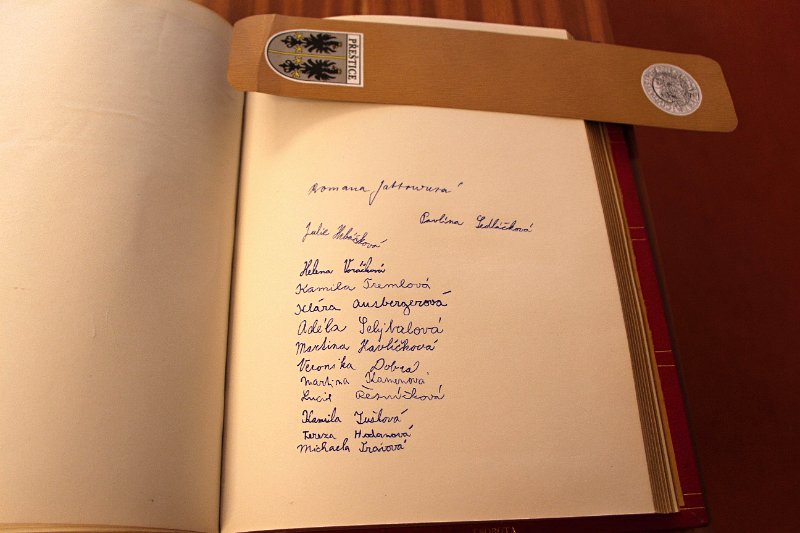 PŘEŠTICE
Romana
Pavlína Sedláčková
Julie
Helena Voráčková
Kamila Tremlová
Klára Ausbergerová
Adéla Selýbalová
Martina Havlíčková
Veronika Dobrá
Martina Kamenová
Lucie Řesníčková
Kamila Tušková
Tereza Hodanová
Michaela